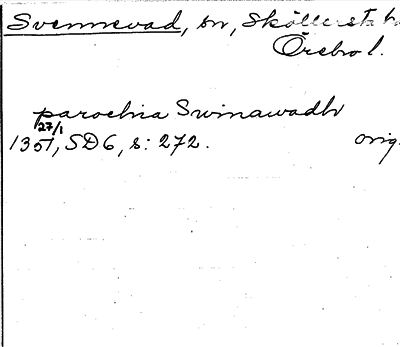 Svennevad, sn, Sköllersta h
Örebro l.
parochia Swinawadh
27/1
1351, SD6, s: 272. orig